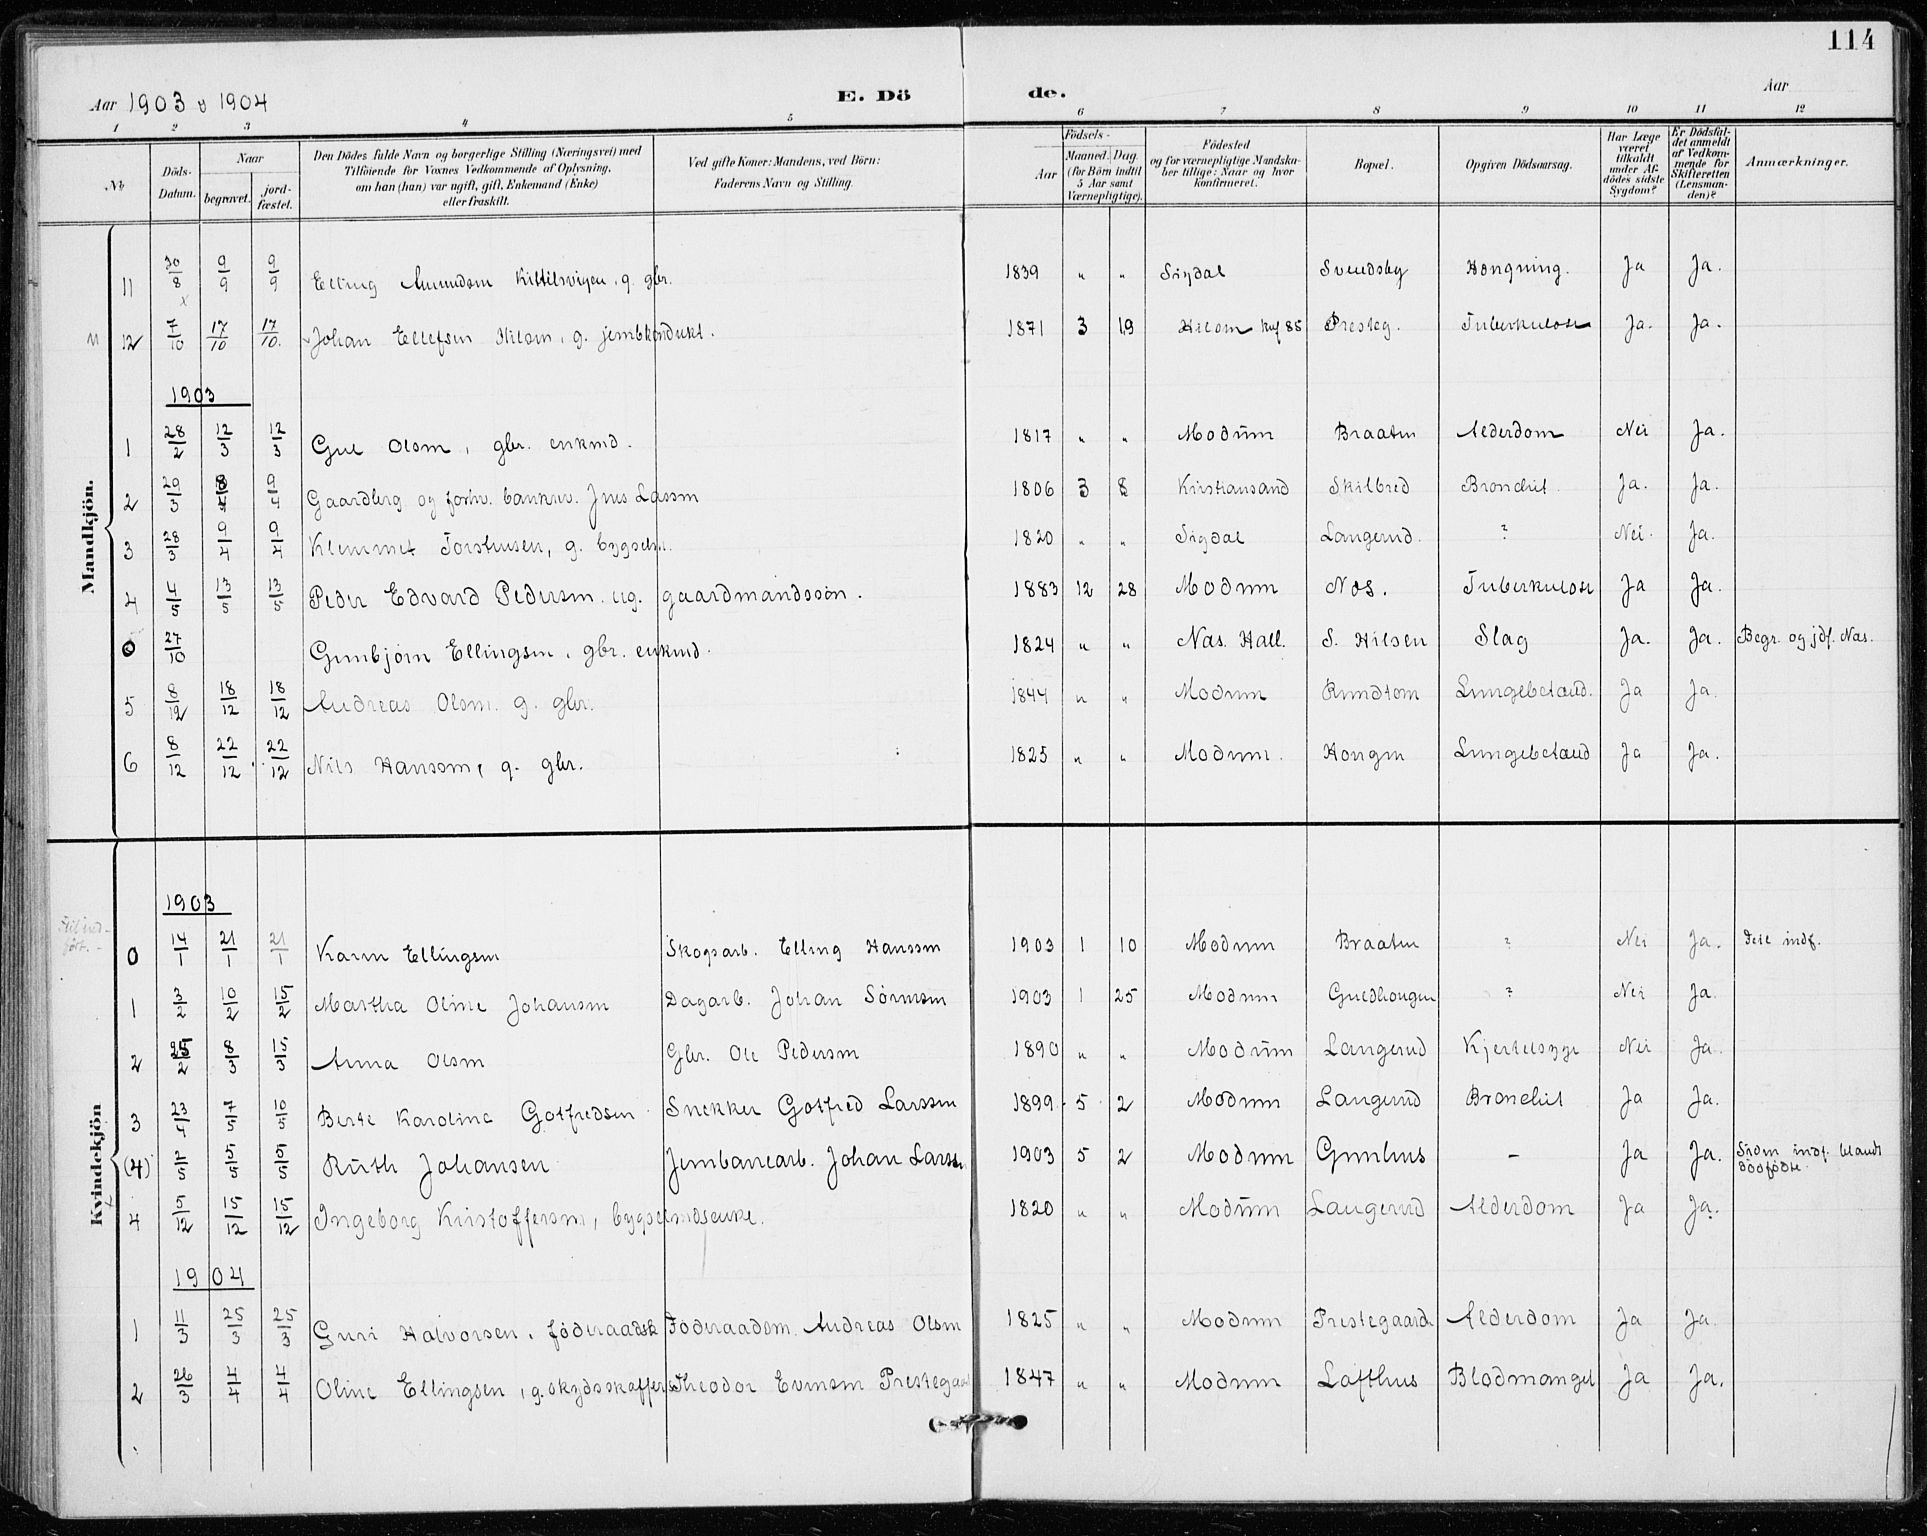 114
Aar 1903 o 1904 E. Dö de. Aar
1 2 3 4 5 6 7 8 9 10 11 12
No Döds-Datum. Naar begravet. jordfæstet. Den Dödes fulde Navn og borgerlige Stilling (Næringsvei) med Tilföiende for Voxnes Vedkommende af Oplysning, om han (hun) var ugift, gift, Enkemand (Enke) eller fraskilt. Ved gifte Koner: Mandens, ved Börn: Faderens Navn og Stilling. Födsels- Aar Maaned. Dag. (for Börn indtil 5 Aar samt Værnepligtige). Födested og for værnepligtige Mandskaber tillige: Naar og hvor konfirmeret. Bopæl. Opgiven Dödsaarsag. Har Læge været tilkaldt under Afdödes sidste Sygdom? Er Dödsfaldet anmeldt af Vedkommende for Skifteretten (Lensmanden)? Anmærkninger.
Mandkjön.
11 30/8 9/9 9/9 Elling Amundsen Kittilsvigen, g. gbr. 1839 " " Sigdal Svendsby Hongning. Ja Ja.
12 7/10 17/10 17/10. Johan Ellefsen Hilsen, g. jernbkondukt. 1871 3 19 Hilsen kuf 85 Presteg. Tuberkulose Ja. Ja.
1903
1 28/2 12/3 12/3 Gul Olsen, gbr. enkmd. 1817 " " Modum Braaten Alderdom Nei Ja.
2 29/3 8/4 9/4 Gaardbrg og forhv. bankrev. Jens Lassen 1806 3 8 Kristiansand Skilbred Bronchit. Ja. Ja.
3 28/3 9/4 9/4 Klemmet Torstensen, g. bygselm. 1820 " " Sigdal Langerud. ? Nei. Ja.
4 4/5 13/5 13/5 Peder Edvard Pedersen. ug. gaardmandssön. 1883 12 28 Modum Nos. Tuberkulose Ja Ja.
0 27/10 Gunbjörn Ellingsen. gbr. enkmd. 1824 " " Nas. Hall. S. Hilsen Slag Ja. Ja. Begr. og jdf. Nas.
5 8/12 18/12 18/12 Andreas Olsen. g. gbr. 1844 " " Modum Rundtom Lungebetænd. Ja Ja.
6 8/12 22/12 22/12 Nils Hansen, g. gbr. 1825 " " Modum. Hongen Lungebetænd Ja Ja.
Kvindekjön
1903
0 14/1 21/1 21/1 Karen Ellingsen Skogsarb. Elling Hanssen 1903 1 10 Modum Braaten ? Nei Ja. Feil indf.
1 3/2 10/2 15/2 Martha Oline Johansen Dagarb. Johan Sörensen 1903 1 25 Modum Guldhougen ? Nei Ja.
2 25/2 8/3 15/3 Anna Olsen Gbr. Ole Pedersen 1890 " " Modum Langerud Kjertelsyge Nei Ja.
3 23/4 7/5 10/5 Berte Karoline Gotfredsen Snekker Gotfred Larssen 1899 5 2 Modum Langerud Bronchit Ja Ja.
(4) 2/5 5/5 5/5 Ruth Johansen Jernbanearb. Johan Larss. 1903 5 2 Modum Gunhus – Ja Ja. Siden indf. blandt dödfödte.
4 5/12 15/12 15/12 Ingeborg Kristoffersen, bygselmdsenke. 1820 " " Modum Langerud Alderdom Ja Ja.
1904
1 11/3 25/3 25/3 Guri Halvorsen, föderaadsk Föderaadsm. Andreas Olsen 1825 " " Modum Prestegaarde Alderdom Ja Ja.
2 26/3 4/4 4/4 Oline Ellingsen, g. skydsskaffer Theodor Evensen Prestegaa 1847 " " Modum Lofthus Blodmangel Ja Ja.